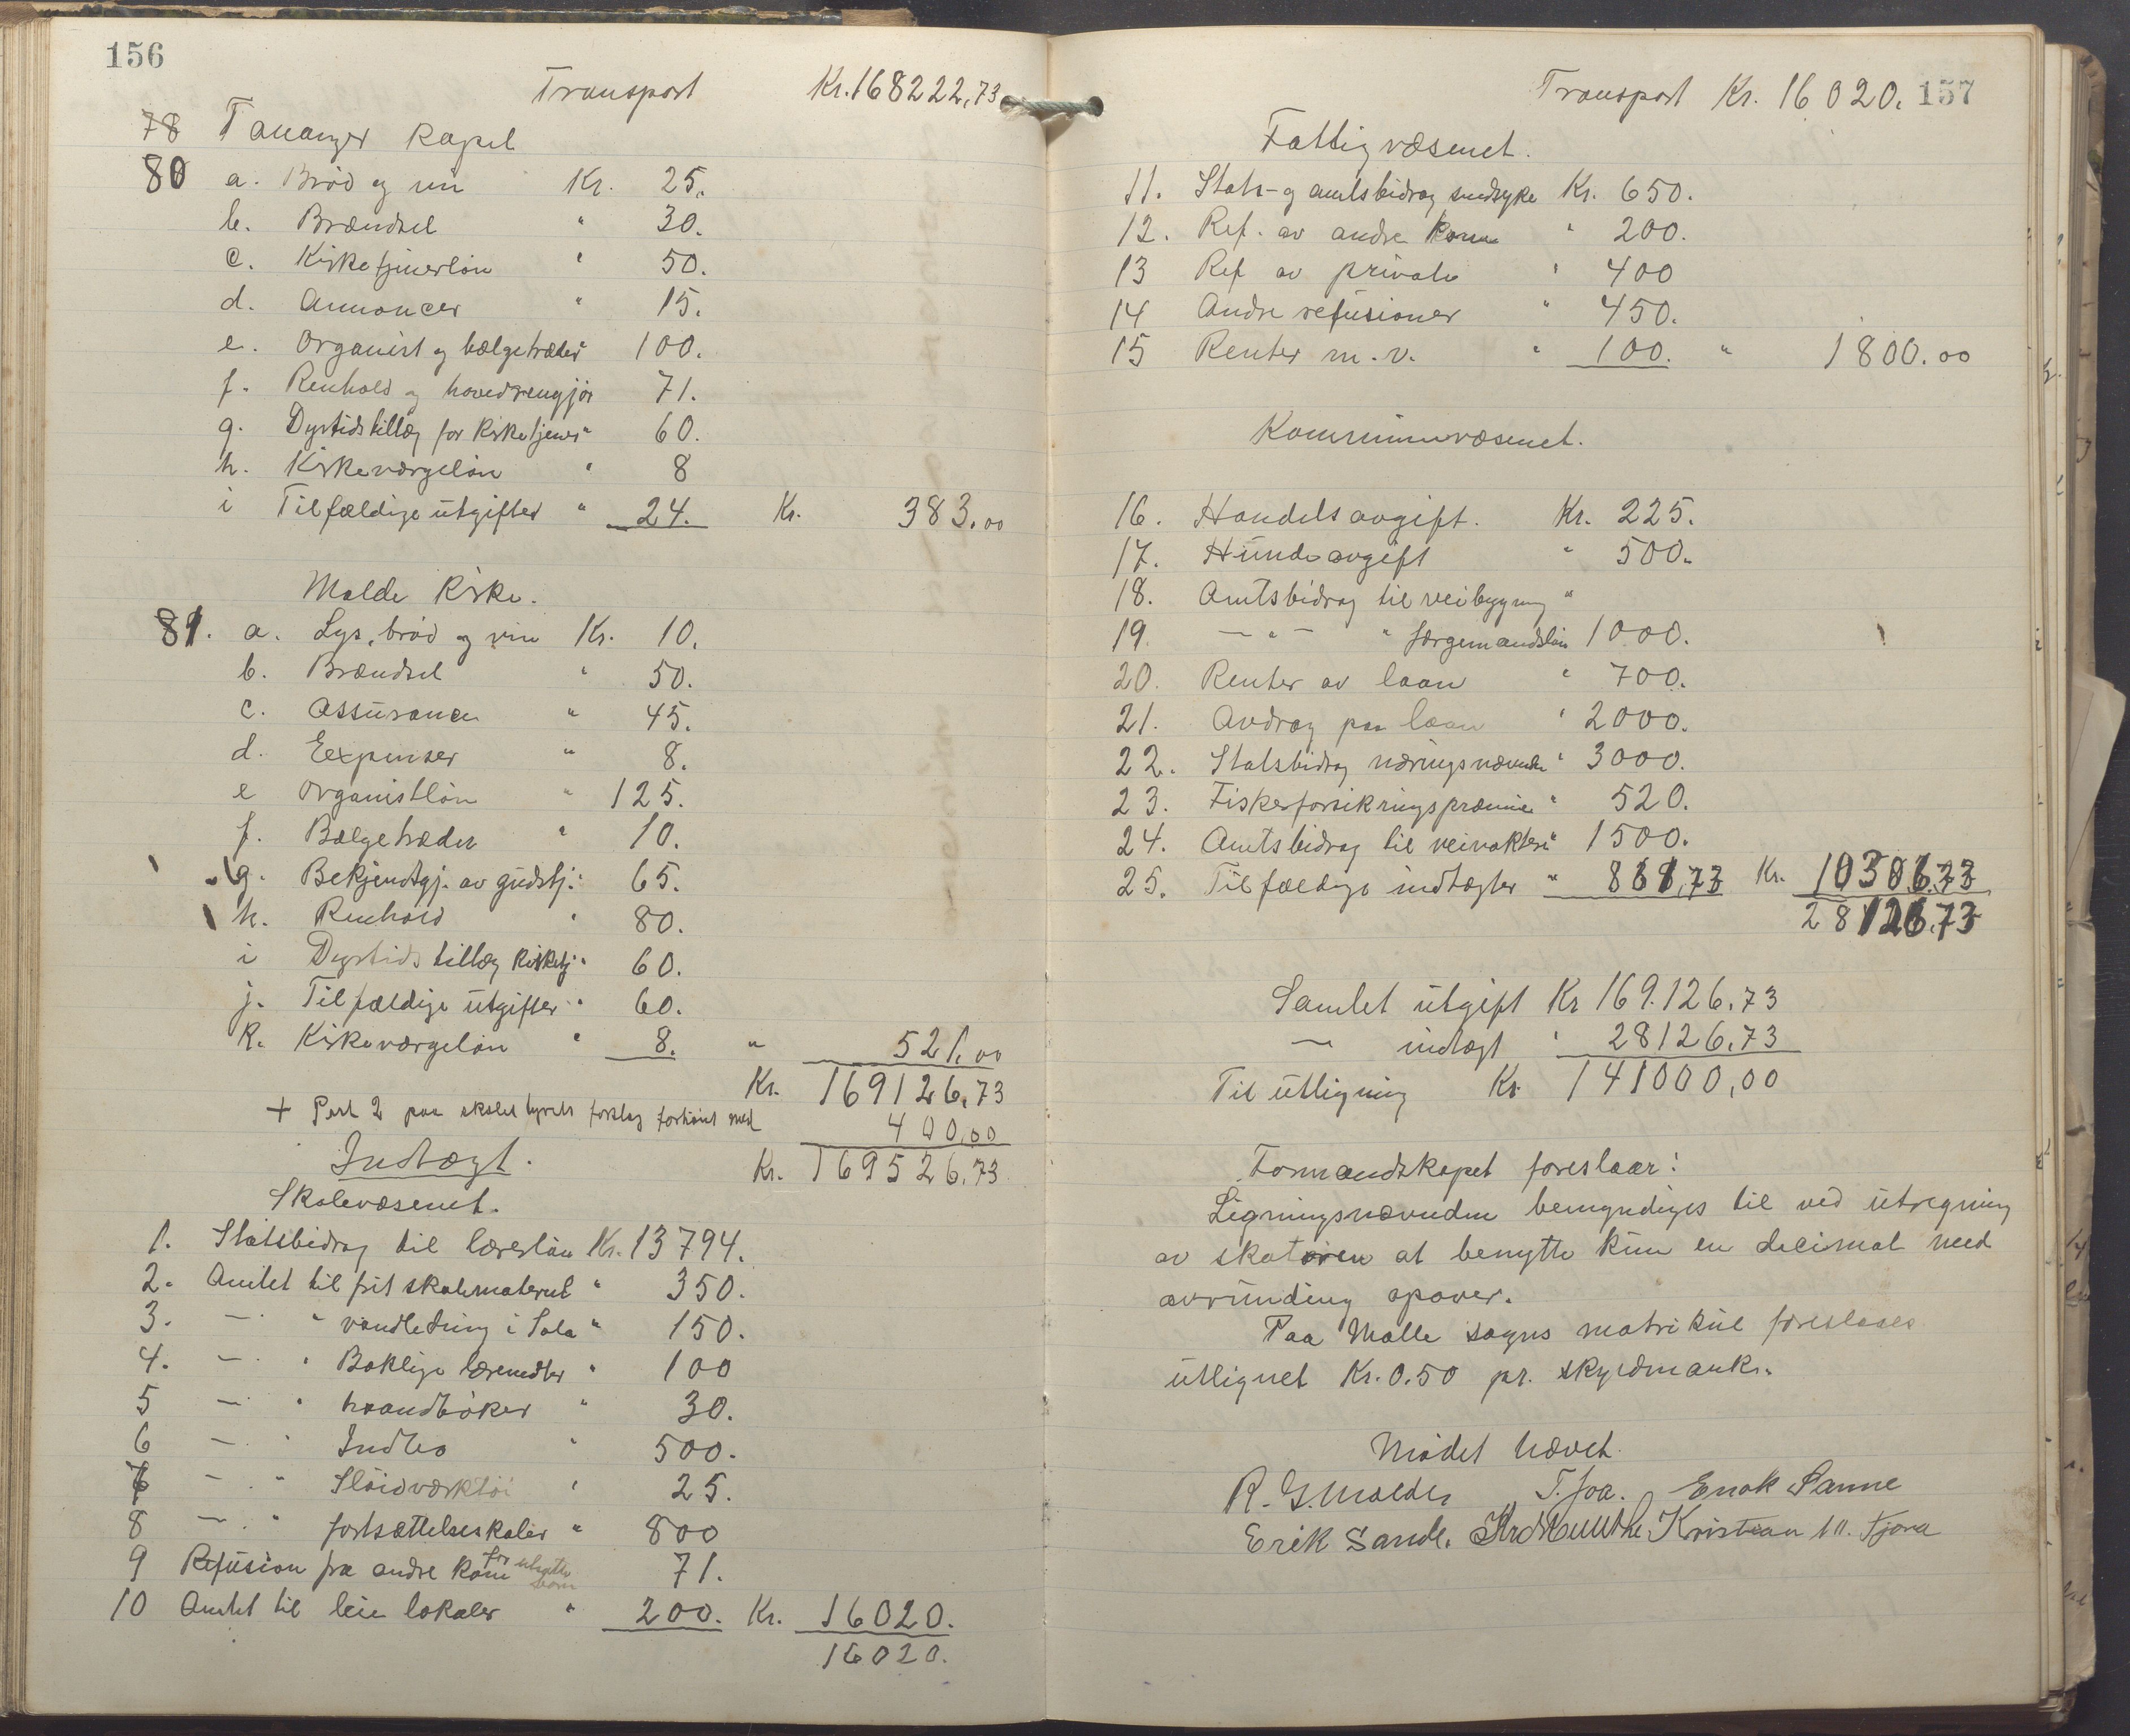 156
Transport Kr. 168222,73
78 Tananger kapel
80 a. Brød og vin Kr. 25.
b. Brændsel " 30.
c. Kirketjenerløn " 50.
d. Annoncer " 15.
e. Organist og bælgetræder " 100.
f. Renhold og hovedrengjør 71.
g. Dyrtidstillæg for kirketjener " 60.
h. Kirkeværgeløn " 8
i Tilfældige utgifter " 24. Kr. 383.00
Malde kirke.
81. a. Lys, brød og vin Kr. 10.
b. Brændsel " 50.
c. Assurance " 45.
d. Eexpenser " 8.
e Organistløn " 125.
f. Bælgetræder " 10.
g. Bekjendtgj. av gudstj. " 65.
h. Renhold " 80.
i Dyrtidstillæg kirketj " 60.
j. Tilfældige utgifter " 60.
k. Kirkeværgeløn " 8. " 521.00
Kr. 169126,73
+ Post 2 paa skolestyrets forslag forhøiet med 400,00
Kr. 169526,73
Indtægt.
Skolevæsenet.
1. Statsbidrag til lærerløn Kr. 13794.
2. Amtet til frit skolemateriel " 350.
3. — " vandledning i Sola " 150.
4. — " Boklige læremidler " 100
5 — " haandbøker " 30.
6 — " Indbo " 500.
7 — " Sløidverktøi " 25.
8 — " fortsættelseskoler " 800
9 Refusion fra andre kom for utsatte børn 71.
10 Amtet til leie lokaler " 200. Kr. 16020.
16020.
Transport Kr. 16020. 157
Fattigvæsenet.
11. Stats- og amtsbidrag sindsyke Kr. 650.
12. Ref. av andre kom " 200.
13 Ref av private " 400
14 Andre refusioner " 450.
15 Renter m.v. " 100. " 1800.00
Kommunevæsenet.
16. Handelsavgift. Kr. 225.
17. Hundeavgift " 500.
18. Amtsbidrag til veibygning "
19. — " — " færgemandsløn 1000.
20. Renter av laan " 700.
21. Avdrag paa laan " 2000.
22. Statsbidrag næringsnævnden " 3000.
23. Fiskerforsikringspræmie " 520.
24. Amtsbidrag til veivoktere " 1500.
25. Tilfældige indtægter " 861,73 Kr. 10306.73
28126.73
Samlet utgift Kr 169.126,73
— indtægt " 28126,73
Til utligning Kr. 141000,00
Formandskapet foreslaar:
Ligningsnævnden bemyndiges til ved utregning
av skatøren at benytte kun en decimal med
avrunding opover.
Paa Malle sogns matrikul foreslaaes
utlignet Kr. 0.50 pr. skyldmark.
Mødet hævet.
R. G. Malde T. Joa. Enok Sanne
Erik Sande. Kristian M. Tjora